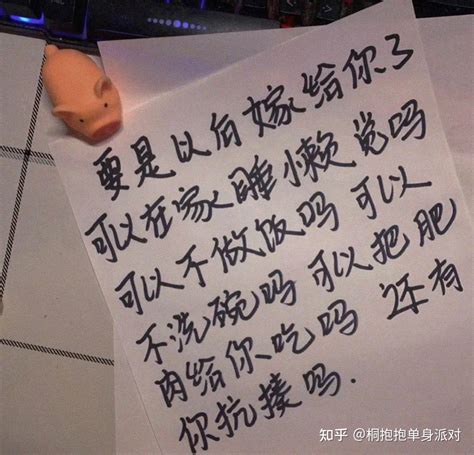 要是以后嫁给你了
可以在家睡小懒觉吗
可以不做饭吗可以
不洗碗吗可以把肥
肉给你吃吗还有
你抗揍吗.
知乎 @桐抱抱单身派对